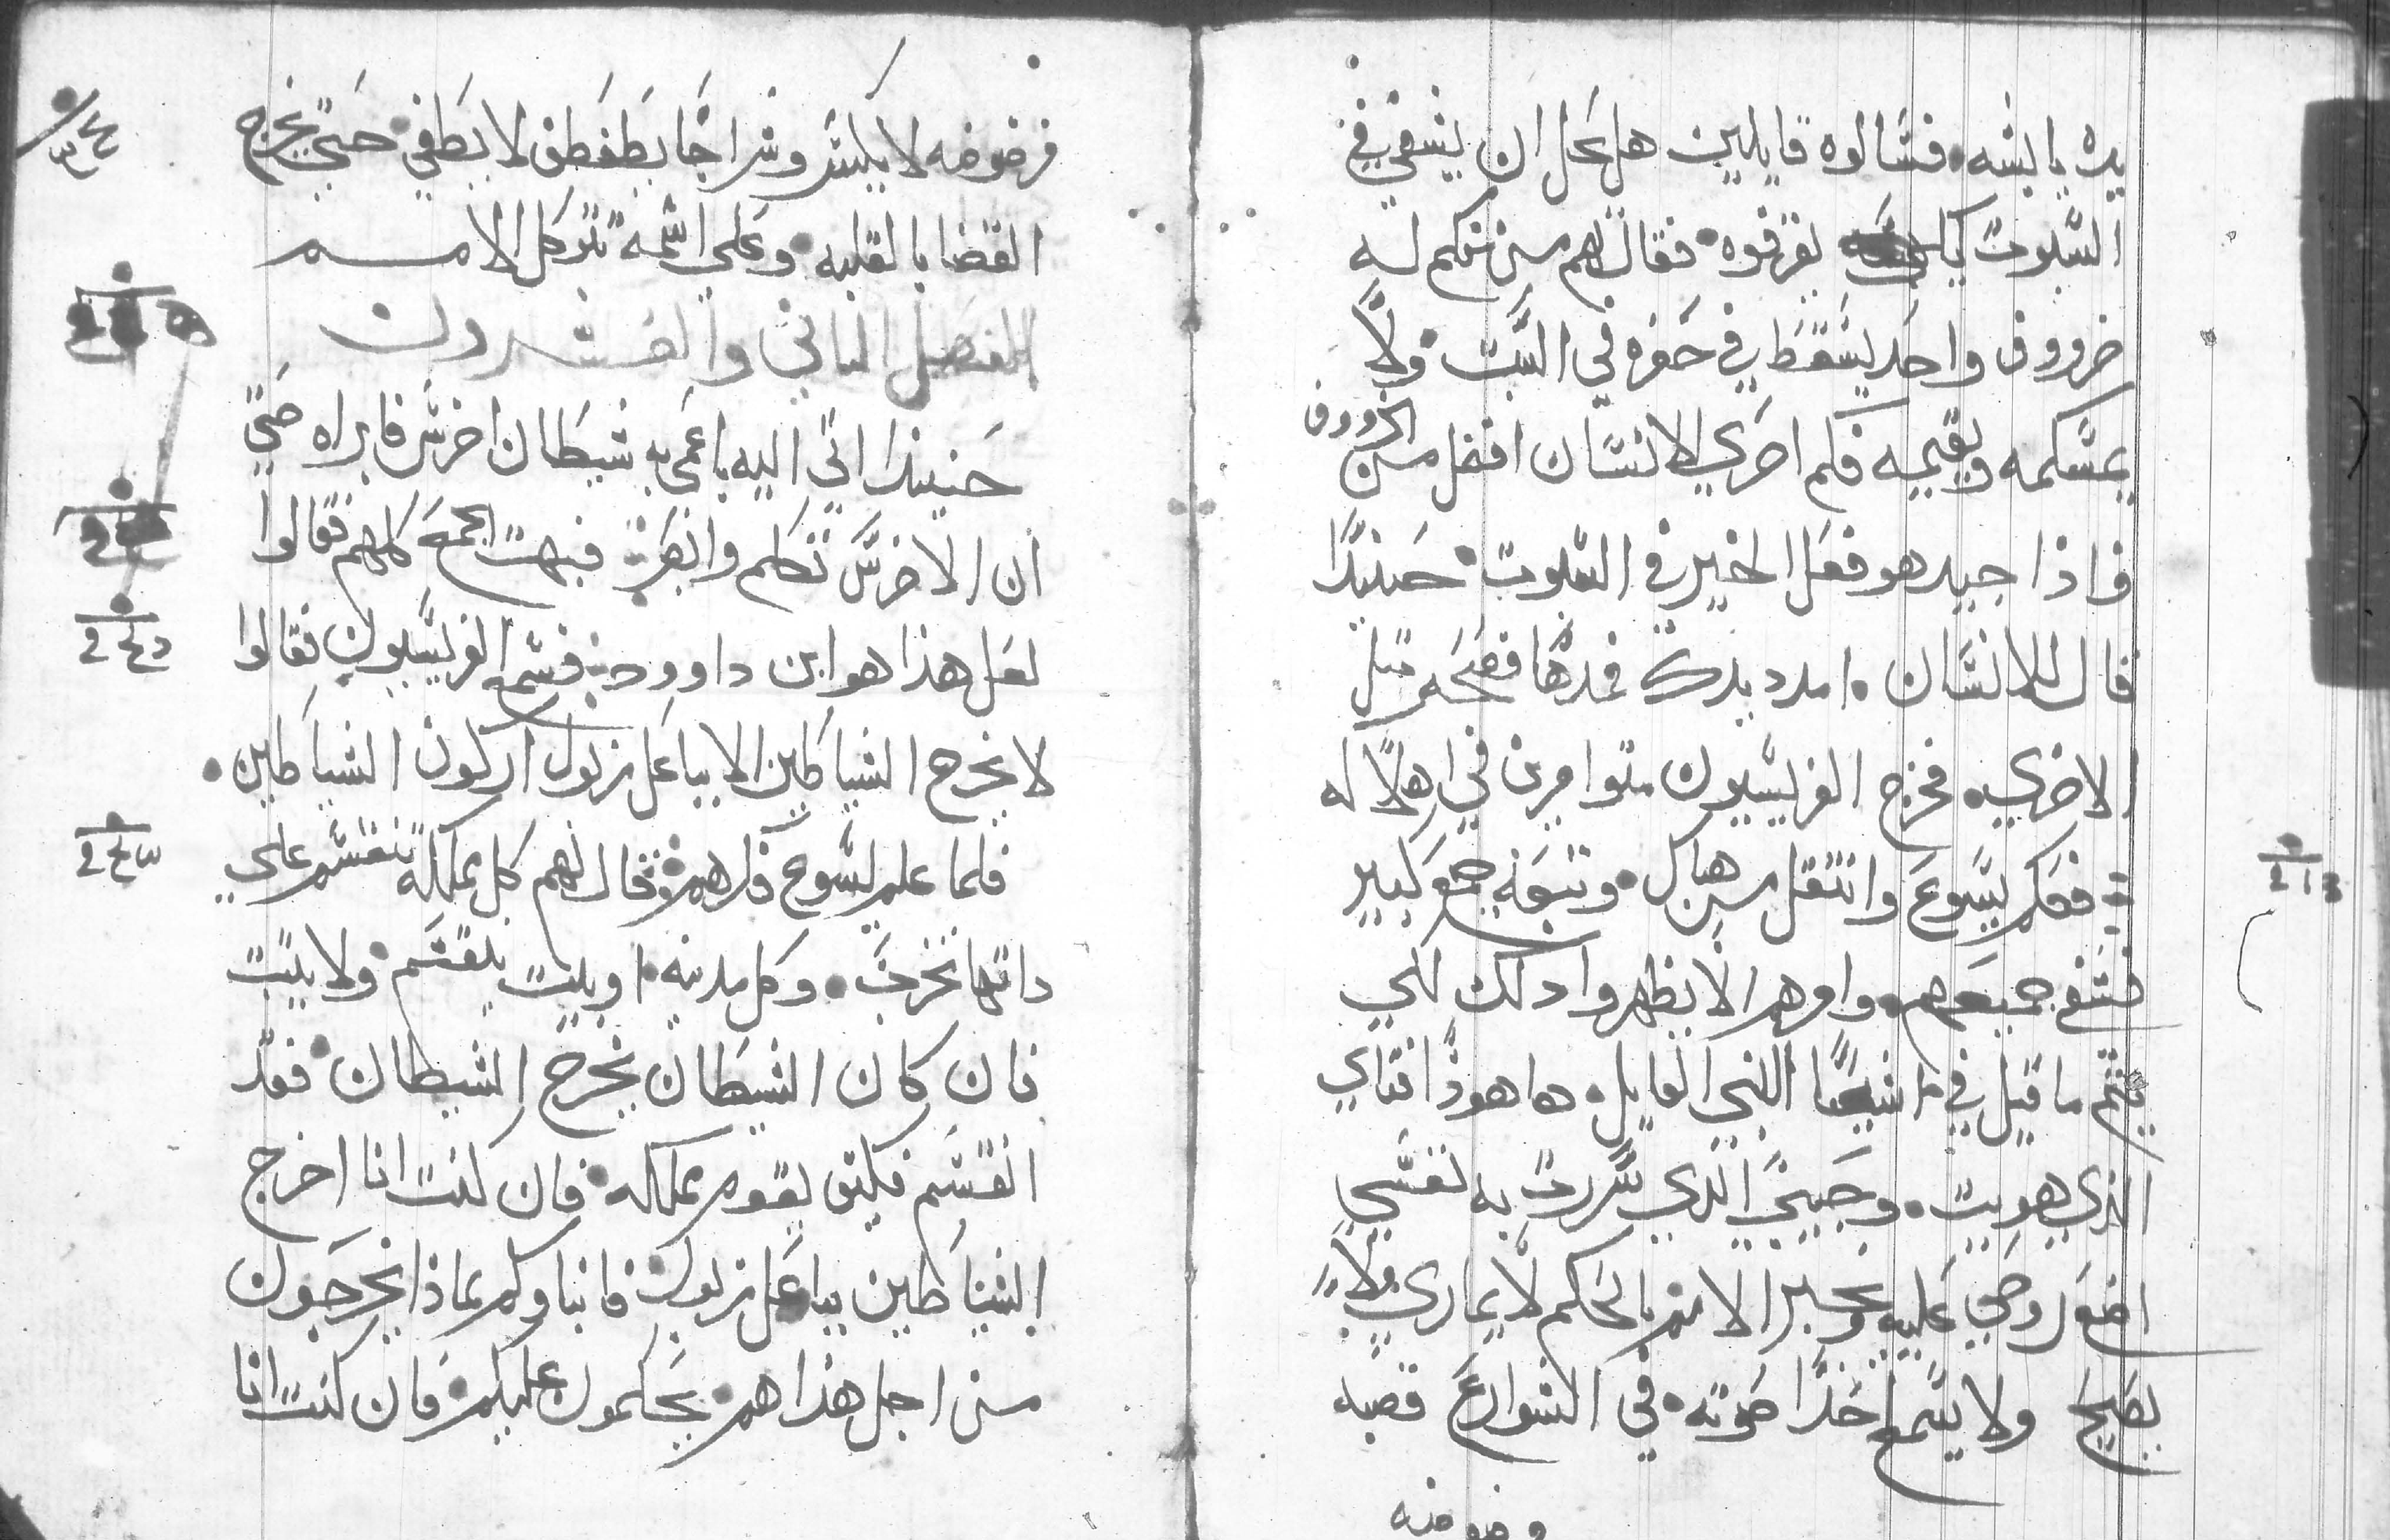 يده يابسه۰ فسالوه قايلين هل يحل ان يشفي في
السبوت لكي يقرفوه۰ فقال لهم من منكم له
خروف واحد يسقط في حفره في السبت۰ ولا
يمسكه ويقيمه فكم احري الانسان افضل من الخروف
فاذا جيد هو فعل الخير في السبوت۰ حينيدا
قال للانسان ۰ امدد يدك فمدها فصحت مثل
الاخري۰ فخرج الفريسيون متوامرين في اهلاكه
فعلم يسوع وانتقل من هناك۰ وتبعه جمع كبير
فشفي جميعهم۰ وامرهم الا يظهروا دلك لكي
يتم ما قيل في اشعيا النبي القايل۰ ها هودا فتاي
الذي هويت۰ وحبيبي الذي سررت به نفسي
اضع روحي عليه ويخبر الامم بالحكم لا يماري ولا
يصيح ولا يسمع احدا صوته۰ في الشوارع قصبه
مرضوضه لا يكسر وسراجا يطفطف لا يطفي۰ حتي يخرج
القضا بالغلبه۰ وعلي اسمه تتوكل الامم
الفصل الثاني والعشرون
حينيدا اتي اليه باعمي به شيطان اخرس فابراه حتي
ان الاخرس تكلم وابصر۰ فبهت الجمع كلهم فقالوا
لعل هذا هو ابن داوود۰ فسمع الفريسيون فقالوا
لا يخرج الشياطين الا بباعل زبول اركون الشياطين۰
فلما علم يسوع فكرهم۰ قال لهم كل مملكه تنقسم علي
داتها تخرب۰ وكل مدينه۰ او بيت ينقسم۰ ولا يثبت
فان كان الشيطان يخرج الشيطان۰ فقد
انقسم فكيف يقوم مملكه۰ فان كنت انا اخرج
الشياطين بباعل زبول۰ فابناوكم بماذا يخرجون
من اجل هذا هم يحكمون عليكم۰ فان كنت انا